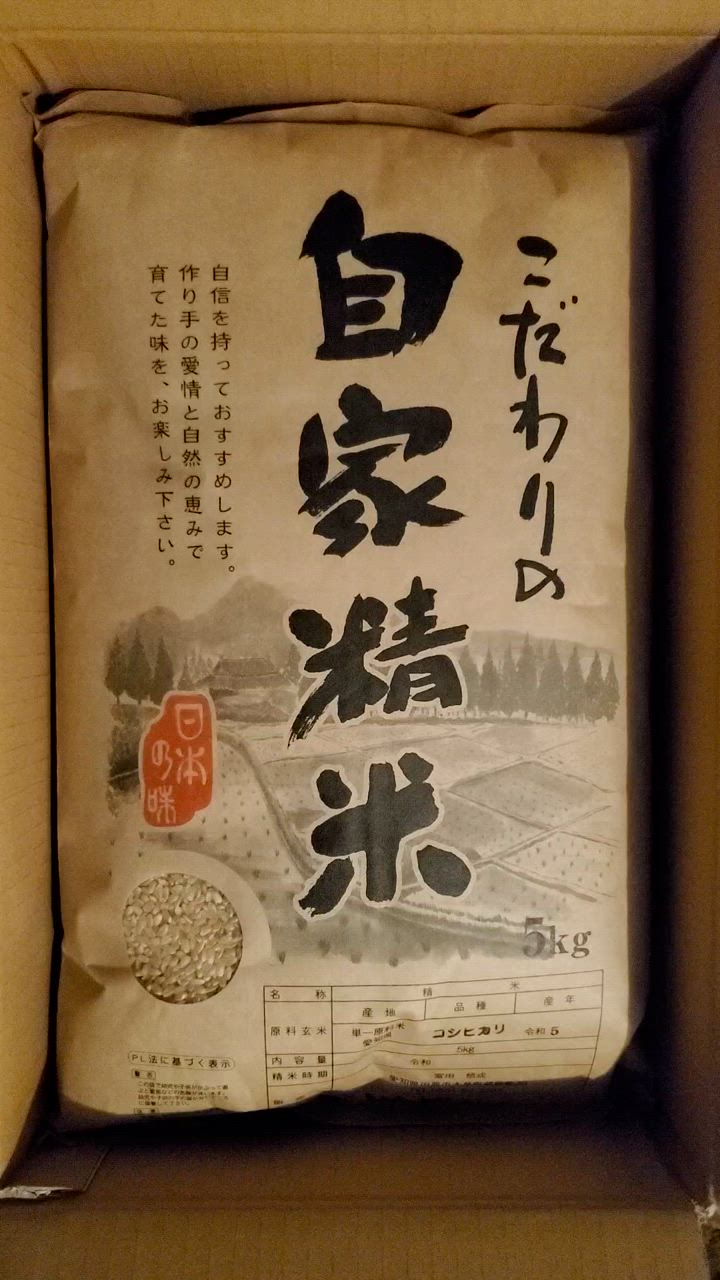 こだわりの
自家精米
自信を持っておすすめします。
作り手の愛情と自然の恵みで
育てた味を、お楽しみ下さい。
日本
の味
5kg
名称 精米
原料玄米 産地 品種 産年
単一原料米
愛知県 コシヒカリ 令和5
内容量 5kg
精米時期 令和
PL法に基づく表示
警告